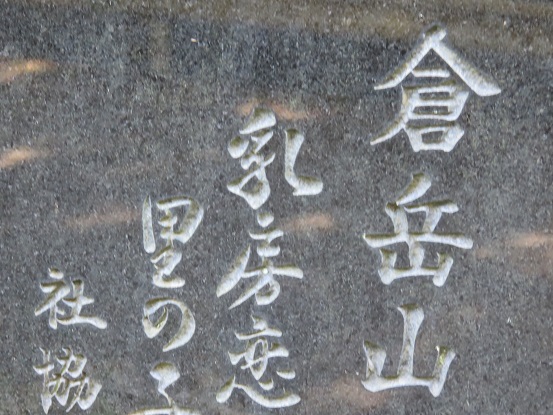 倉岳山
乳房恋
里の
社協